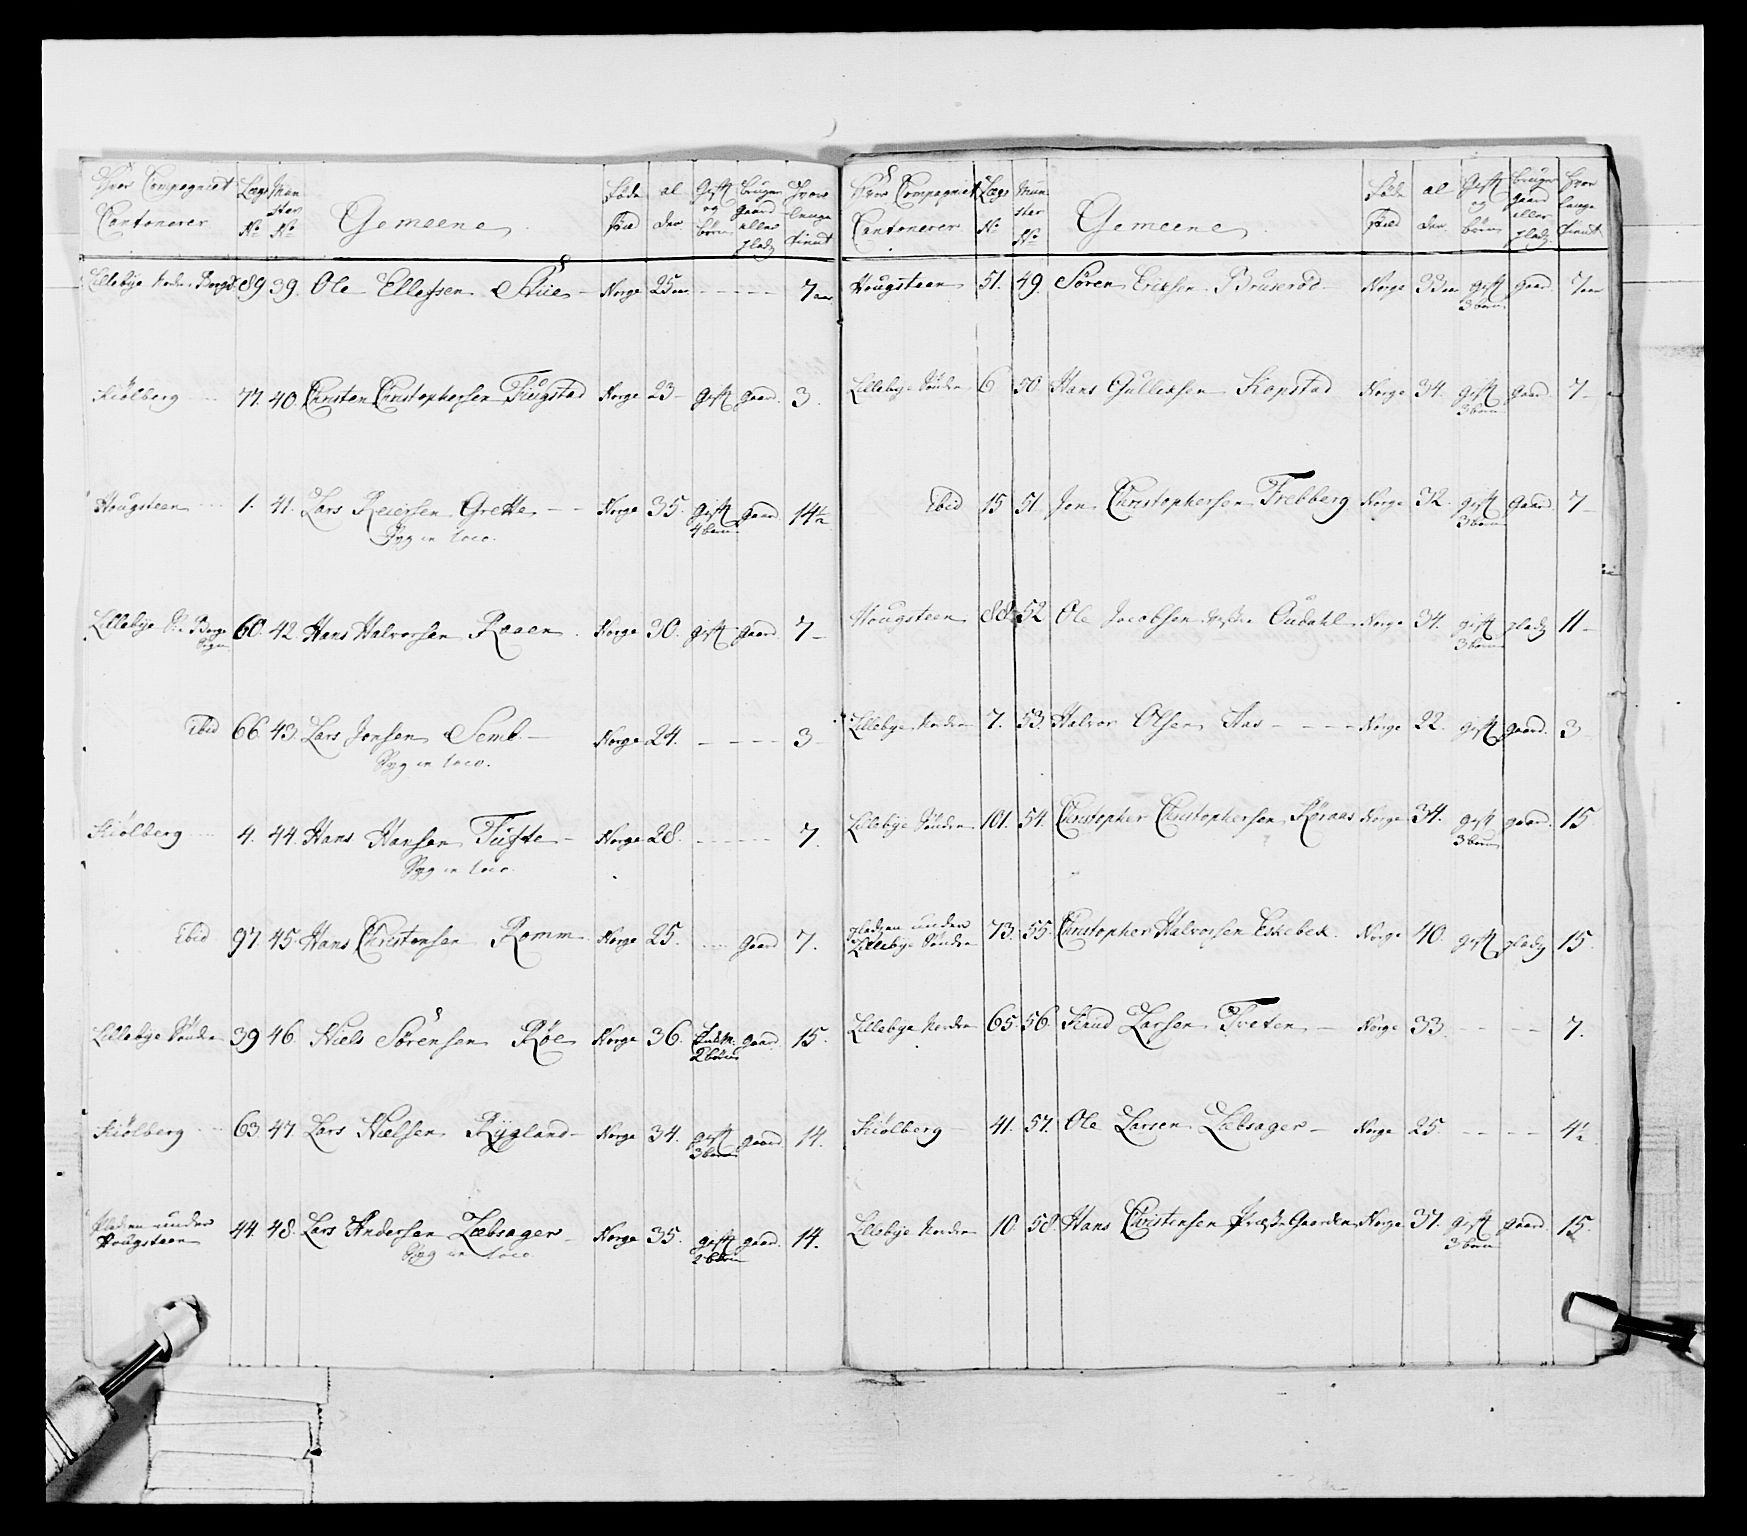 Hvor Compagniet Cantonerer | Lægs No | Mün ster No | Gemeene | Föde Stæd | al der | Gift og börn | bruger gaard eller pladz | Hvor længe tient
Lillebÿe Nordre Bergs | 89 | 39. | Ole Ellefsen Stüe | Norge | 25 aar | - - - - | 7 aar
Kiölberg | 77. | 40. | Christen Christophersen Fiugstad | Norge | 23 | gift | gaard. | 3.
Hougsteen | 1. | 41. | Lars Reiersen Grette | Norge | 35. | gift 4 børn | gaard | 14½
Syg in loco.
Lillebÿe Berge | 60. | 42. | Hans Halvorsen Roaen | Norge | 30. | gift | gaard | 7
Ibid | 66. | 43. | Lars Jensen Semb. | Norge | 24. | - - - - | 3
Syg in loco.
Kiölberg | 4. | 44. | Hans Hansen Tüfte | Norge | 28. | - - - - | 7.
Syg in loco.
Ibid | 97. | 45. | Hans Christensen Romm | Norge | 25. | gaard | 7.
Lillebÿe Söndre | 39 | 46. | Niels Sörensen Röe | Norge | 36. | Enkem. 2 børn | gaard. | 15.
Kiölberg | 63 | 47. | Lars Nielsen Rÿgland | Norge | 34. | gift 3 børn | gaard. | 14.
Pladsen under Hougsteen | 44. | 48. | Lars Andersen Læbsager | Norge | 35. | gift 2 børn | gaard. | 14.
Syg in loco
Hvor Compagniet Cantonerer | Lægs No | Mün ster No | Gemeene | Föde Stæd | al der | Gift og börn | bruger gaard eller pladz | Hvor længe tient
Hougsteen | 51. | 49. | Sören Erichsen Bruseröd | Norge | 33 aar | gift 3 børn | gaard | 7 aar
Lillebÿe Söndre | 6 | 50. | Hans Gulleksen Kopstad | Norge | 34. | gift 3 børn | gaard | 7
Ibid | 15 | 51 | Jen Christophersen Frebberg | Norge | 32. | gift 3 børn | Gaard. | 7
Hougsteen | 88 | 52 | Ole Jacobsen Oudahl | Norge | 34. | gift 3 børn | pladz | 11
Lillebÿe Nordre | 7. | 53. | Halvor Olsen Aas | Norge | 22. | gift | gaard. | 3
Lillebÿe Söndre | 101. | 54. | Christopher Christophersen Röraas | Norge | 34. | gift 3 børn | gaard. | 15
pladsen under Lillebÿe Söndre | 73. | 55. | Christopher Halvorsen Eskebek. | Norge | 40. | gift | pladz | 15.
Lillebÿe Nordre | 65. | 56. | Knud Larsen Tveten | Norge | 33. | - - - - | 7.
Kiölberg | 41. | 57. | Ole Larsen Læbsager | Norge | 25. | - - - - | 4½
Lillebÿe Nordre | 10. | 58. | Hans Christensen Præste Gaarden | Norge | 37. | gift 3 børn | gaard. | 15.